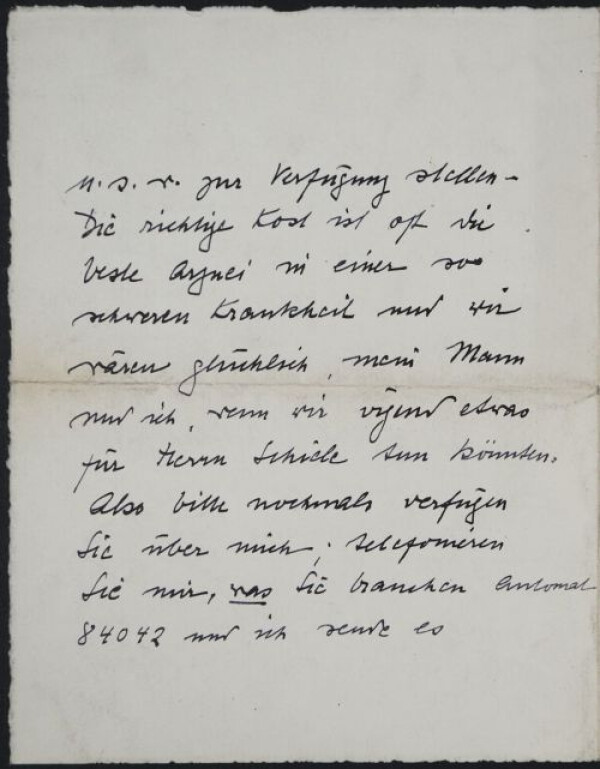 u. s. w. zur Verfügung stellen –
Die richtige Kost ist oft die
beste Arznei in einer so
schweren Krankheit und wir
wären glücklich, mein Mann
und ich, wenn wir irgend etwas
für Herrn Schiele tun könnten.
Also bitte nochmals verfügen
Sie über mich; telefonieren
Sie mir, was Sie brauchen Automat
84042 und ich sende es